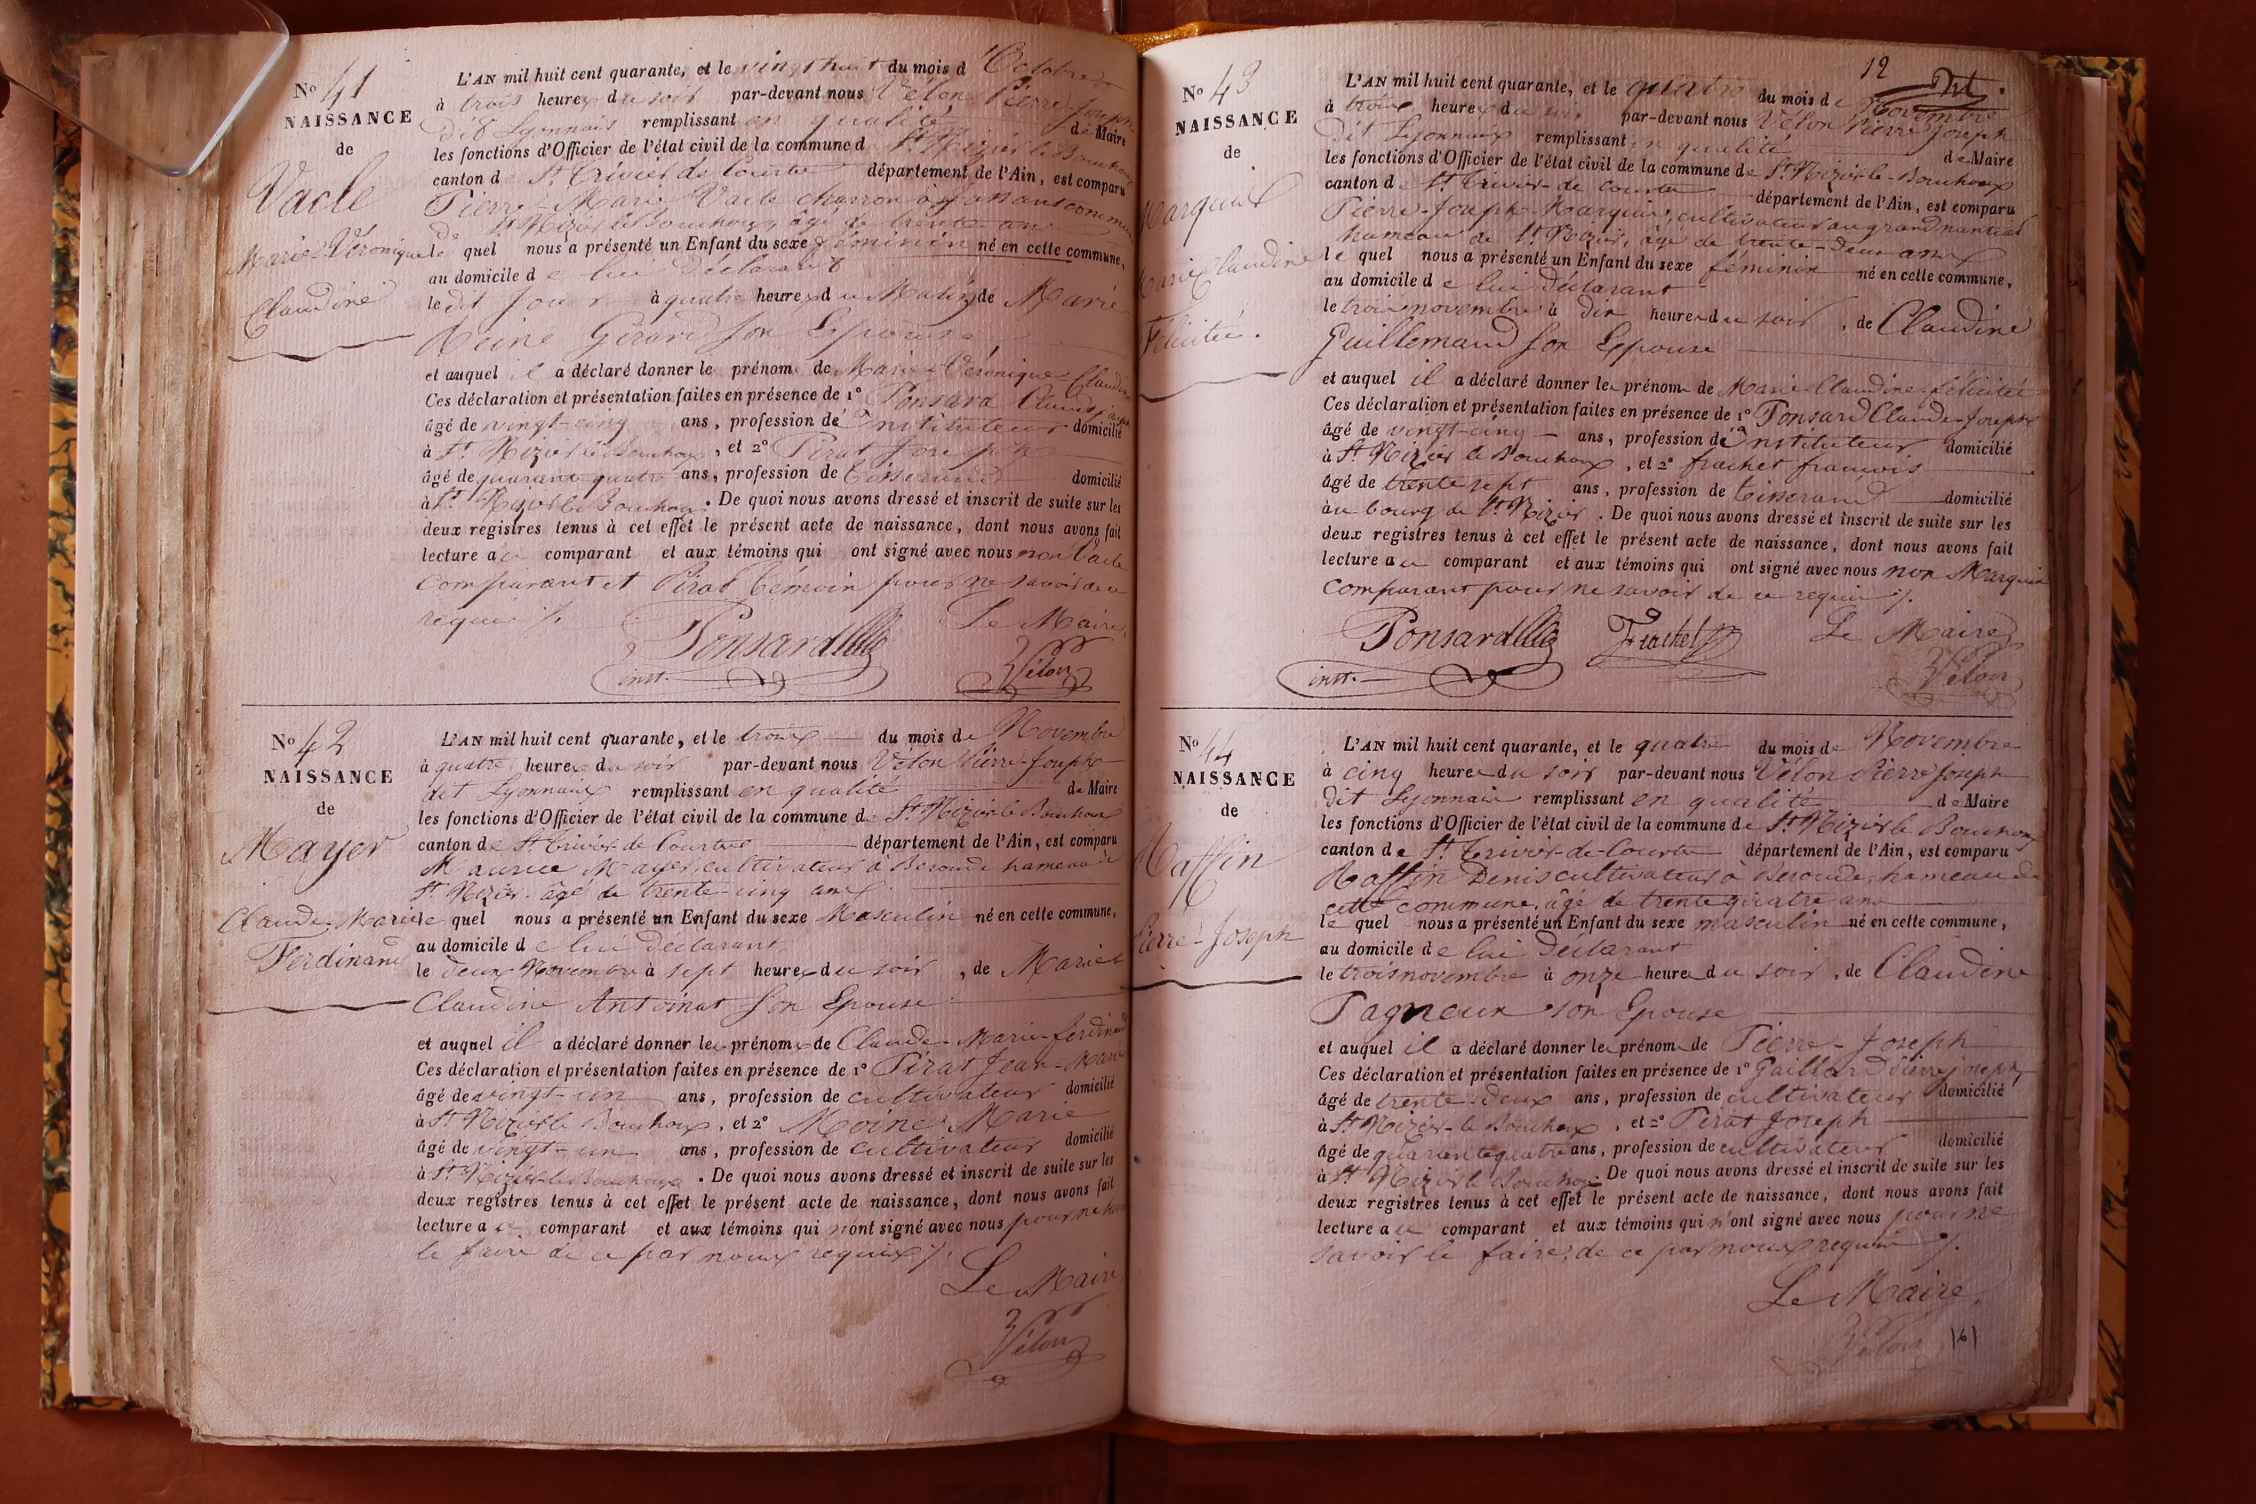 No 41
NAISSANCE
de
Vacle
Marie Véronique
Claudine
L'AN mil huit cent quarante, et le vingt huit du mois d'Octobre
à trois heures du soir par-devant nous Vélon Pierre-Joseph
dit Lyonnais remplissant en qualité de Maire
les fonctions d'Officier de l'état civil de la commune de St Nizier le Bouchoux
canton de St Trivier de Courtes département de l'Ain, est comparu
Pierre-Marie Vacle charron à commune
de St Nizier le Bouchoux, âgé de trente ans
le quel nous a présenté un Enfant du sexe féminin né en cette commune,
au domicile de lui déclarant
le dit jour à quatre heures du Matin de Marie
Reine Girard son Epouse
et auquel il a déclaré donner le prénoms de Marie Véronique Claudine
Ces déclaration et présentation faites en présence de 1º Ponsard Claude joseph
âgé de vingt-cinq ans, profession d'instituteur domicilié
à St Nizier le Bouchoux, et 2º Pirat Joseph
âgé de quarante quatre ans, profession de tisserand domicilié
à St Nizier le Bouchoux. De quoi nous avons dressé et inscrit de suite sur les
deux registres tenus à cet effet le présent acte de naissance, dont nous avons fait
lecture au comparant et aux témoins qui ont signé avec nous non Vacle
comparant et Pirat témoin pour ne savoir de ce
requis ./.
Ponsard Le Maire,
inst. Vélon
No 42
NAISSANCE
de
Mayer
Claude-Marie
Ferdinand
L'AN mil huit cent quarante, et le trois du mois de Novembre
à quatre heures du soir par-devant nous Vélon Pierre-Joseph
dit Lyonnais remplissant en qualité de Maire
les fonctions d'Officier de l'état civil de la commune de St Nizier le Bouchoux
canton de St Trivier de Courtes département de l'Ain, est comparu
Maurice Mayer, cultivateur à Béroude hameau de
St Nizier âgé de trente-cinq ans
le quel nous a présenté un Enfant du sexe Masculin né en cette commune,
au domicile de lui déclarant
le deux Novembre à sept heures du soir, de Marie
Claudine Antoinat son Epouse
et auquel il a déclaré donner les prénoms de Claude-Marie-ferdinand
Ces déclaration et présentation faites en présence de 1º Pirat Jean-Marie
âgé de vingt-un ans, profession de cultivateur domicilié
à St Nizier le Bouchoux, et 2º Moine Marie
âgé de vingt-un ans, profession de cultivateur domicilié
à St Nizier-le-Bouchoux. De quoi nous avons dressé et inscrit de suite sur les
deux registres tenus à cet effet le présent acte de naissance, dont nous avons fait
lecture au comparant et aux témoins qui n'ont signé avec nous pour ne savoir
le faire de ce par nous requis ./.
Le Maire
Vélon
12
No 43
NAISSANCE
de
Marquis
Marie Claudine
Félicité.
L'AN mil huit cent quarante, et le quatre du mois de Novembre
à trois heures du soir par-devant nous Vélon Pierre Joseph
dit Lyonnais remplissant en qualité de Maire
les fonctions d'Officier de l'état civil de la commune de St Nizier-le-Bouchoux
canton de St Trivier-de-Courtes département de l'Ain, est comparu
Pierre-Joseph-Marquis, cultivateur au grand nantier
hameau de St Nizier, âgé de trente-deux ans
le quel nous a présenté un Enfant du sexe féminin né en cette commune,
au domicile de lui déclarant
le trois novembre à dix heures du soir, de Claudine
Guillemaud son Epouse
et auquel il a déclaré donner les prénoms de Marie-Claudine-félicité
Ces déclaration et présentation faites en présence de 1º Ponsard Claude-Joseph
âgé de vingt-cinq ans, profession d'instituteur domicilié
à St Nizier le Bouchoux, et 2º frachet francois
âgé de trente sept ans, profession de tisserand domicilié
au bourg de St Nizier. De quoi nous avons dressé et inscrit de suite sur les
deux registres tenus à cet effet le présent acte de naissance, dont nous avons fait
lecture au comparant et aux témoins qui ont signé avec nous non Marquis
comparant pour ne savoir de ce requis ./.
Ponsard Frachet Le Maire
inst. Vélon
No 44
NAISSANCE
de
Raffin
Pierre-Joseph
L'AN mil huit cent quarante, et le quatre du mois de Novembre
à cinq heures du soir par-devant nous Vélon Pierre Joseph
dit Lyonnais remplissant en qualité de Maire
les fonctions d'Officier de l'état civil de la commune de St Nizier le Bouchoux
canton de St Trivier-de-Courtes département de l'Ain, est comparu
Raffin Denis cultivateur à Béroude, hameau de
cette commune, âgé de trente quatre ans
le quel nous a présenté un Enfant du sexe masculin né en cette commune,
au domicile de lui déclarant
le trois novembre à onze heures du soir, de Claudine
Pagneux son Epouse
et auquel il a déclaré donner les prénoms de Pierre-Joseph
Ces déclaration et présentation faites en présence de 1º Gaillard Pierre joseph
âgé de trente-deux ans, profession de cultivateur domicilié
à St Nizier-le-Bouchoux, et 2º Pirat Joseph
âgé de quarante quatre ans, profession de cultivateur domicilié
à St Nizier le Bouchoux. De quoi nous avons dressé et inscrit de suite sur les
deux registres tenus à cet effet le présent acte de naissance, dont nous avons fait
lecture au comparant et aux témoins qui n'ont signé avec nous pour ne
savoir le faire, de ce par nous requis ./.
Le Maire,
Vélon
161